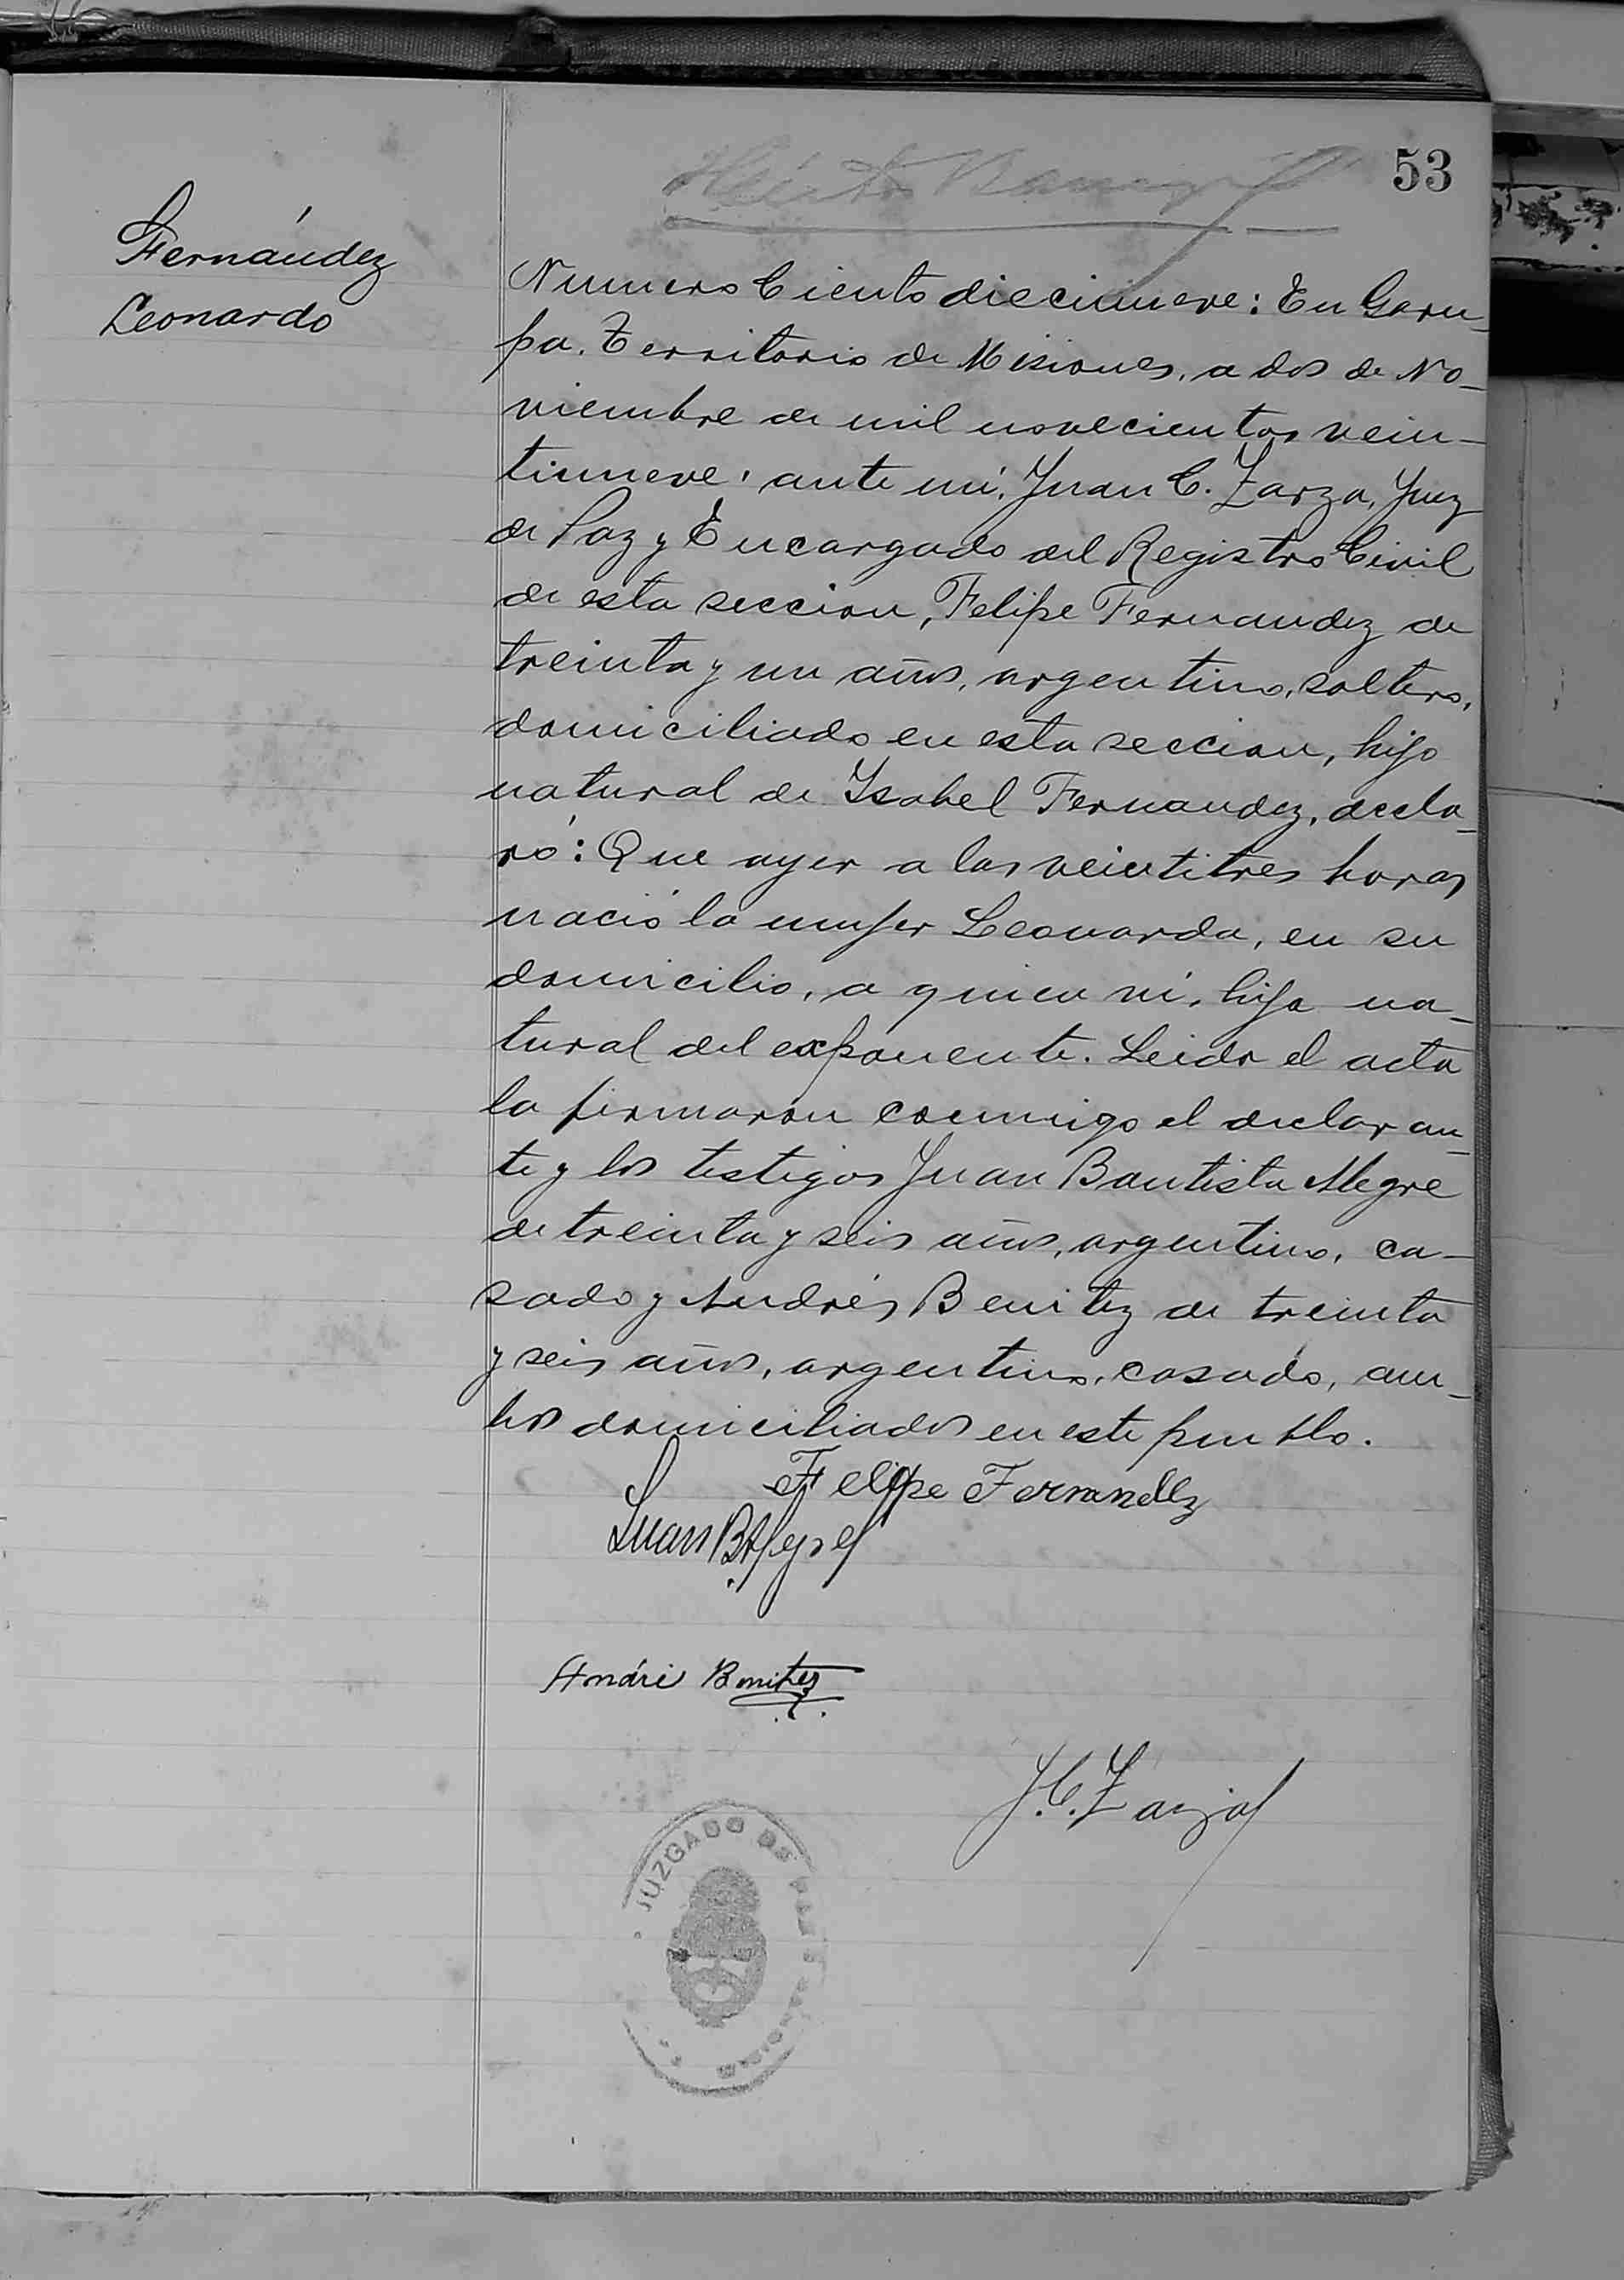 53
Fernández
Leonardo
Numero Ciento diecinueve: En Garu-
pa, Territorio de Misiones, a dos de No-
viembre de mil novecientos vein-
tinueve: ante mí, Juan C. Zarza, Juez
de Paz y Encargado del Registro Civil
de esta seccion, Felipe Fernandez de
treinta y un años, argentino, soltero,
domiciliado en esta seccion, hijo
natural de Isabel Fernandez, decla-
ró: Que ayer a las veintitres horas
nació la mujer Leonarda, en su
domicilio, a quien ví, hija na-
tural del exponente. Leida el acta
la firmaron conmigo el declaran-
te y los testigos Juan Bautista Alegre
de treinta y seis años, argentino, ca-
sado y Andrés Benitez de treinta
y seis años, argentino, casado, am-
bos domiciliados en este pueblo.
Felipe Fernandez
Juan B Alegre
Andre Benitez
J. C. Zarza
JUZGADO DE PAZ